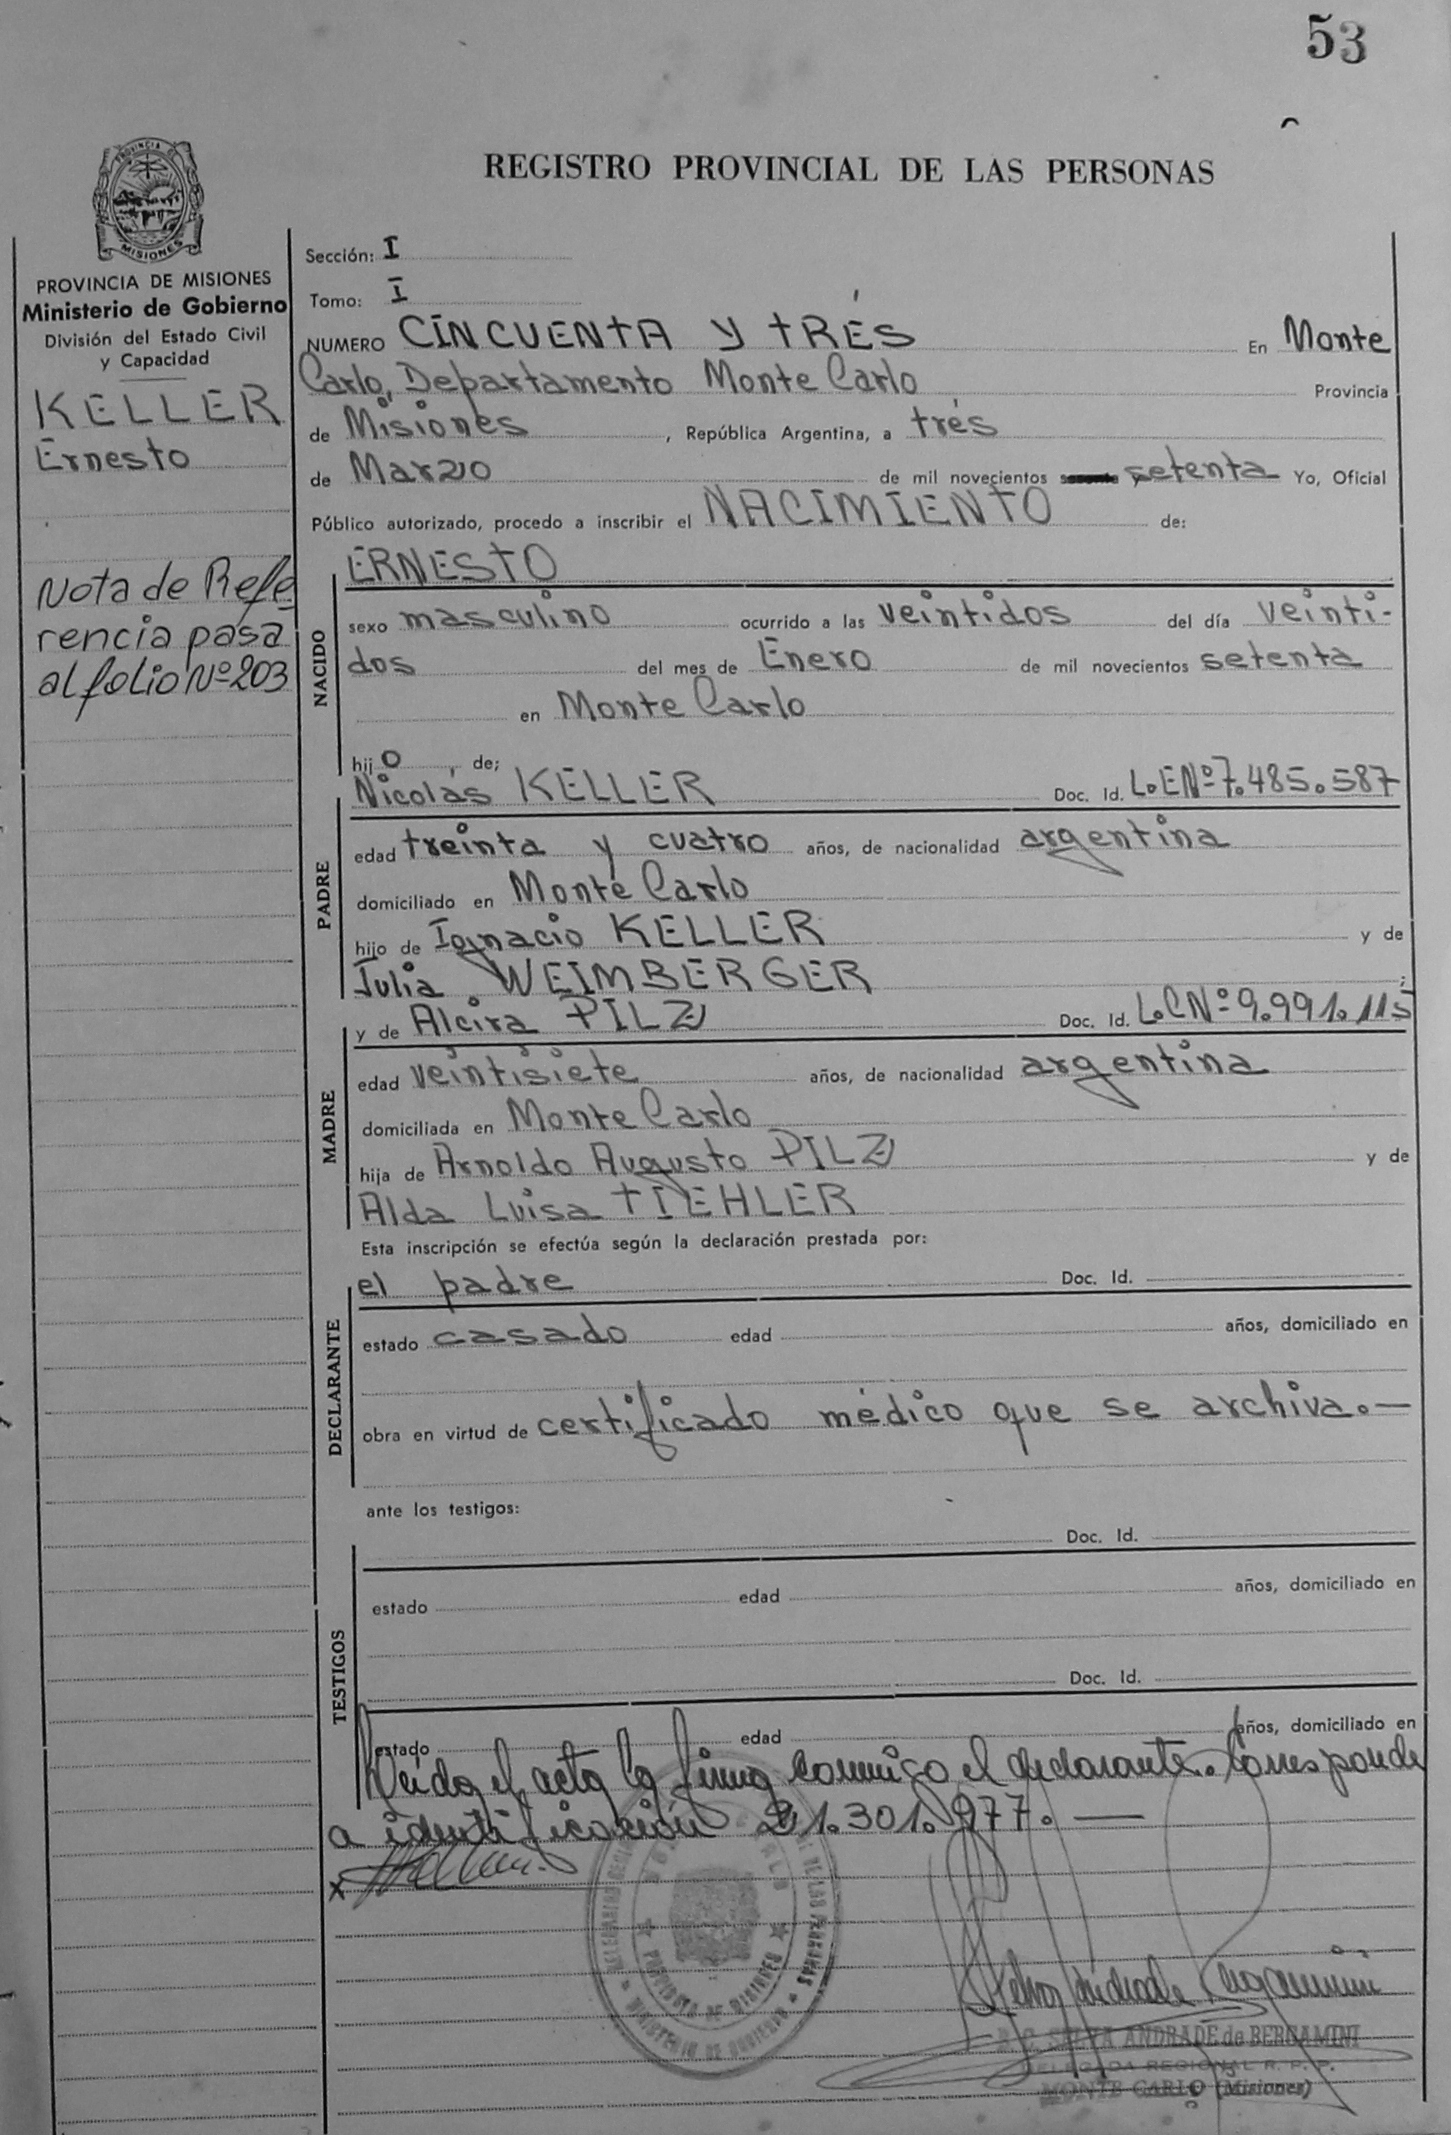 53
REGISTRO PROVINCIAL DE LAS PERSONAS
PROVINCIA DE
MISIONES
PROVINCIA DE MISIONES
Ministerio de Gobierno
División del Estado Civil
y Capacidad
KELLER
Ernesto
Nota de Refe
rencia pasa
al folio Nº 203
Sección: I
Tomo: I
NUMERO CINCUENTA y TRÉS En Monte
Carlo, Departamento Monte Carlo Provincia
de Misiones, República Argentina, a trés
de Marzo de mil novecientos setenta Yo, Oficial
Público autorizado, procedo a inscribir el NACIMIENTO de:
NACIDO
ERNESTO
sexo masculino ocurrido a las veintidos del día veinti-
dos del mes de Enero de mil novecientos setenta
en Monte Carlo
hijo, de;
PADRE
Nicolás KELLER Doc. Id. L.E Nº 7.485.587
edad treinta y cuatro años, de nacionalidad argentina
domiciliado en Monte Carlo
hijo de Ignacio KELLER y de
Julia WEIMBERGER ;
MADRE
y de Alcira PILZ Doc. Id. L.C Nº 9.991.115
edad veintisiete años, de nacionalidad argentina
domiciliada en Monte Carlo
hija de Arnoldo Augusto PILZ y de
Alda Luisa TIEHLER
Esta inscripción se efectúa según la declaración prestada por:
DECLARANTE
el padre Doc. Id.
estado casado edad años, domiciliado en
obra en virtud de certificado médico que se archiva.—
ante los testigos:
TESTIGOS
Doc. Id.
estado edad años, domiciliado en
Doc. Id.
estado edad años, domiciliado en
Leida el acta la firma conmigo el declarante. Corresponde
a identificación 21.301.977.—
x
PROVINCIA DE MISIONES
MINISTERIO DE GOBIERNO
DE LAS PERSONAS
SELVA ANDRADE de BERGAMINI
DELEGADA REGIONAL R. P. P.
MONTE CARLO (Misiones)